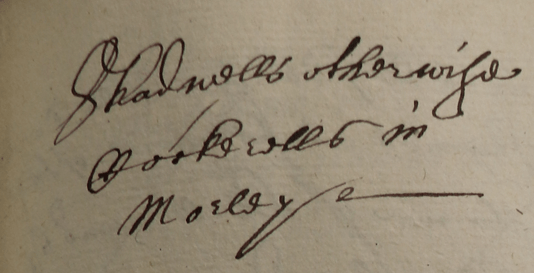 Shadwells otherwise
Cockerells in
Morley